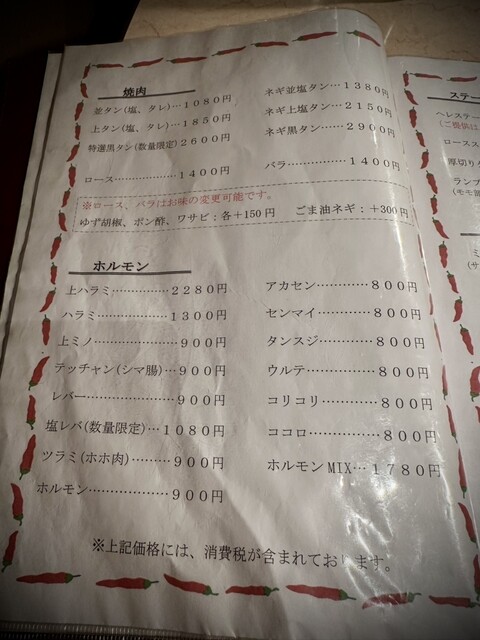 焼肉
並タン(塩、タレ)…1080円
上タン(塩、タレ)…1850円
特選黒タン(数量限定)…2600円
ロース………………1400円
ネギ並塩タン…1380円
ネギ上塩タン…2150円
ネギ黒タン……2900円
バラ……………1400円
※ロース、バラはお味の変更可能です。
ゆず胡椒、ポン酢、ワサビ：各＋150円　ごま油ネギ：＋300円
ホルモン
上ハラミ……………2280円
ハラミ………………1300円
上ミノ…………………900円
テッチャン(シマ腸)…900円
レバー…………………900円
塩レバ(数量限定)…1080円
ツラミ(ホホ肉)………900円
ホルモン………………900円
アカセン…………800円
センマイ…………800円
タンスジ…………800円
ウルテ……………800円
コリコリ…………800円
ココロ……………800円
ホルモンMIX…1780円
※上記価格には、消費税が含まれております。
ステー
ヘレステー
(ご提供に
ロース
厚切り
ランプ